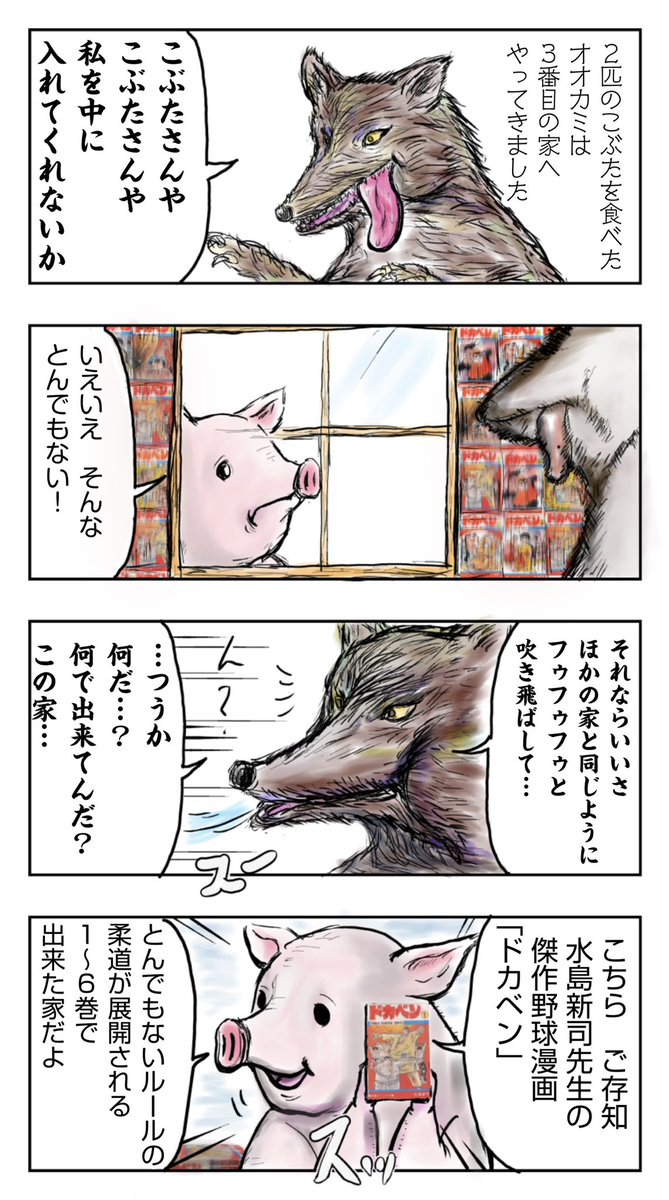 2匹のこぶたを食べた
オオカミは
3番目の家へ
やってきました
こぶたさんや
こぶたさんや
私を中に
入れてくれないか
いえいえ そんな
とんでもない!
ドカベン
ドカベン
ドカベン
ドカベン
ドカベン
それならいいさ
ほかの家と同じように
フゥフゥフゥと
吹き飛ばして…
ん〜
…つうか
何だ…?
何で出来てんだ?
この家…
スー
こちら ご存知
水島新司先生の
傑作野球漫画
「ドカベン」
ドカベン
1
とんでもないルールの
柔道が展開される
1〜6巻で
出来た家だよ
スッ